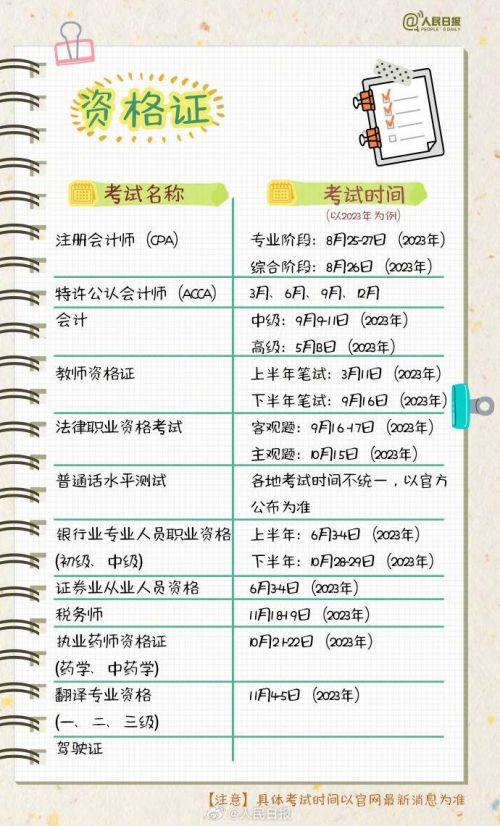 @人民日报
PEOPLE'S DAILY
资格证
考试名称 考试时间
(以2023年为例)
注册会计师（CPA） 专业阶段：8月25-27日（2023年）
综合阶段：8月26日（2023年）
特许公认会计师（ACCA） 3月、6月、9月、12月
会计 中级：9月9-11日（2023年）
高级：5月8日（2023年）
教师资格证 上半年笔试：3月11日（2023年）
下半年笔试：9月16日（2023年）
法律职业资格考试 客观题：9月16-17日（2023年）
主观题：10月15日（2023年）
普通话水平测试 各地考试时间不统一，以官方
公布为准
银行业专业人员职业资格 上半年：6月3-4日（2023年）
(初级、中级) 下半年：10月28-29日（2023年）
证券业从业人员资格 6月3-4日（2023年）
税务师 11月18-19日（2023年）
执业药师资格证 10月21-22日（2023年）
(药学、中药学)
翻译专业资格 11月4-5日（2023年）
(一、二、三级)
驾驶证
【注意】具体考试时间以官网最新消息为准
@人民日报